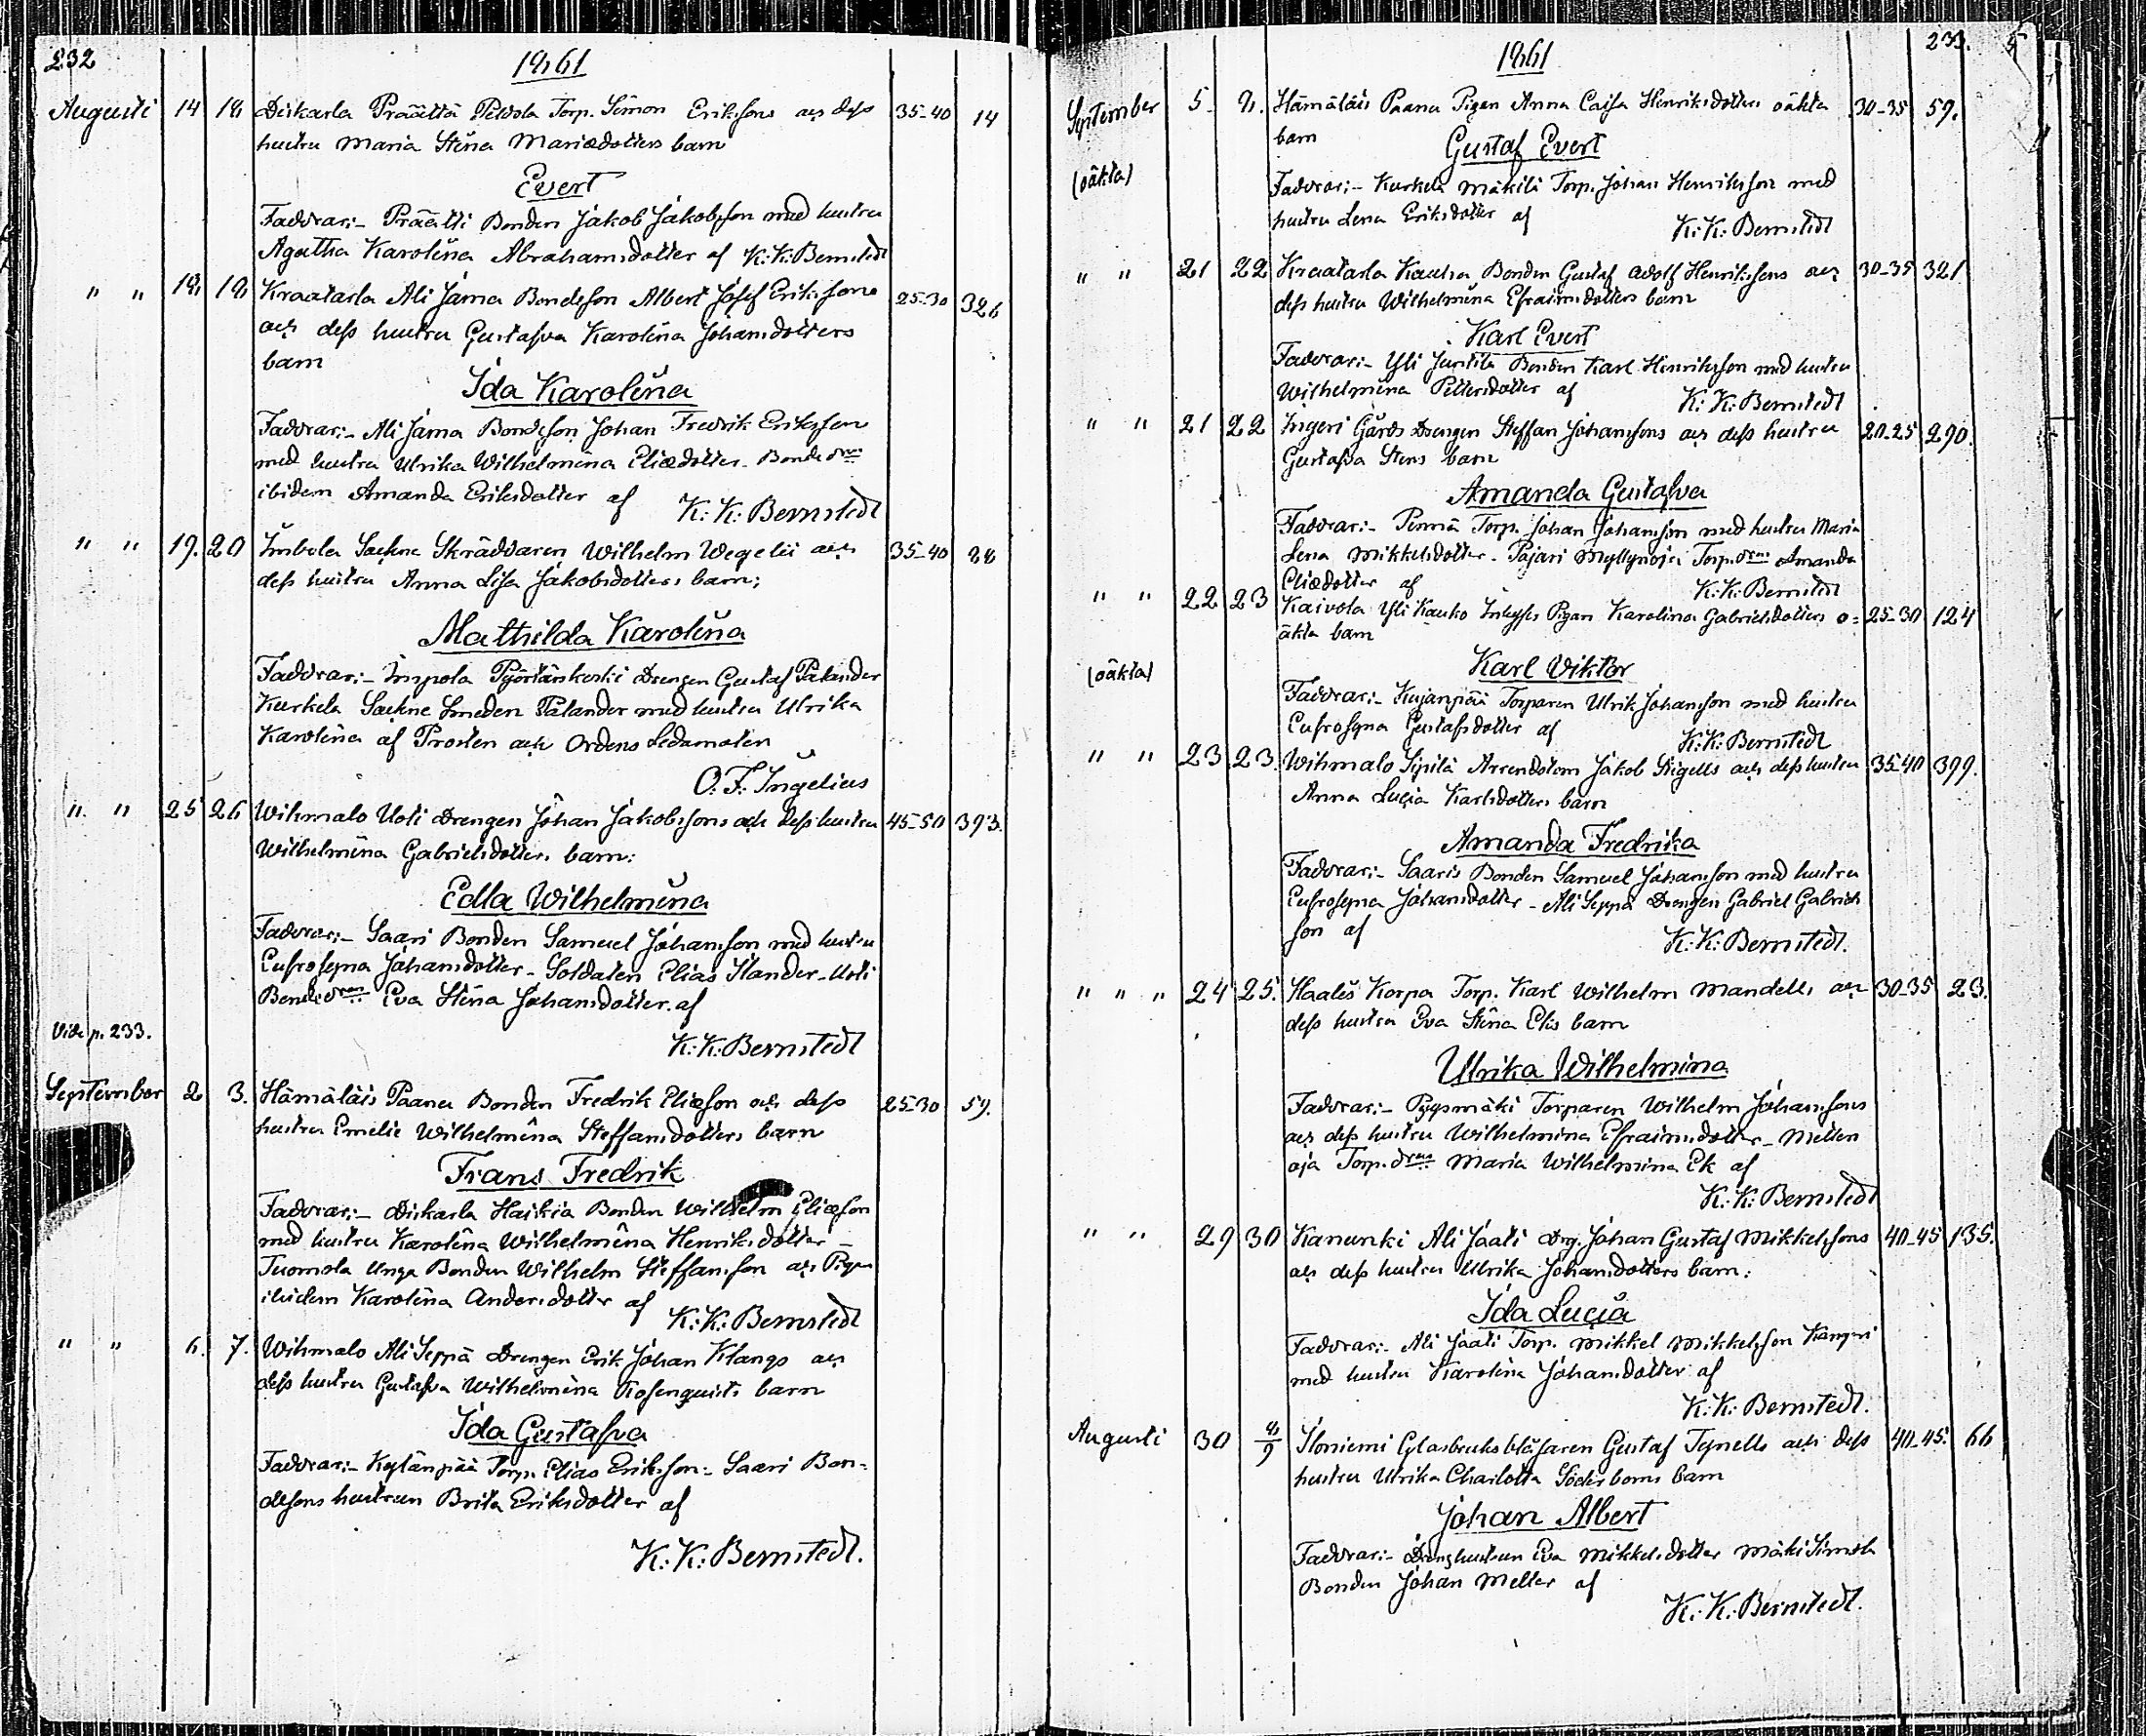 232
1861
Augusti 14 18 Diskarla Präättä Peldola Torp. Simon Erikssons och dess 35-40 14
hustru Maria Stina Mariædotters barn
Evert
Faddrar:- Präätti Bonden Jakob Jakobsson med hustru
Agatha Karolina Abrahamsdotter af K:K:Bernstedt
" " 18 18 Kraatarla Ali Jáma Bondeson Albert Josef Erikssons 25-30 326
och dess hustru Gustafva Karolina Johansdotters
barn
Ida Karolina
Faddrar:- Ali Jáma Bondeson Johan Fredrik Eriksson
med hustru Ulrika Wilhelmina Eliædotter - Bonded:ren
ibidem Amanda Eriksdotter af K:K:Bernstedt
" " 19. 20 Imbola Sackne Skräddaren Wilhelm Wegelii och 35-40 28
dess hustru Anna Lisa Jakobsdotters barn;
Mathilda Karolina
Faddrar:- Impola Pyörtänkoski Drengen Gustaf Palander
Kurkela Sackne Smeden Palander med hustru Ulrika
Karolina af Prosten och Ordens Ledamoten
O.F. Ingelius
" " 25 26 Wihmalo Uoti Drengen Johan Jakobssons och dess hustru 45-50 393.
Wilhelmina Gabrielsdotters barn:
Edla Wilhelmina
Faddrar:- Saari Bonden Samuel Johansson med hustru
Eufrosyna Johansdotter - Soldaten Elias Slander - Uoti
Bonded:ren Eva Stina Johansdotter. af
Vide p. 233.
K:K:Bernstedt
September 2 3. Hämäläis Paanu Bonden Fredrik Eliæson och dess 25-30 59.
hustru Emelie Wilhelmina Steffansdotters barn
Frans Fredrik
Faddrar:- Diskarla Haikia Bonden Wilhelm Eliæson
med hustru Karolina Wilhelmina Henriksdotter -
Tuomola Unga Bonden Wilhelm Steffansson och Pigan
ibidem Karolina Andersdotter af K:K:Bernstedt
" " 6. 7. Wihmalo Ali Seppä Drengen Erik Johan Klangs och
dess hustru Gustafva Wilhelmina Rosenquists barn
Ida Gustafva
Faddrar:- Kylänpää Torp. Elias Eriksson - Saari Bon=
desons hustrun Brita Eriksdotter af
K:K:Bernstedt.
233. 5
1861
September 5. 8. Hämäläis Paanu Pigan Anna Caisa Henriksdotters oäkta 30-35 59.
barn
Gustaf Evert
(oäkta) Faddrar:- Kurkela Mäkilä Torp. Johan Henriksson med
hustru Lena Eriksdotter af K:K:Bernstedt
" " 21 22 Kraatarla Kauha Bonden Gustaf Adolf Henrikssons och 30-35 321
dess hustru Wilhelmina Efraimsdotters barn
Karl Evert
Faddrar:- Yli Juntila Bonden Karl Henriksson med hustru
Wilhelmina Pettersdotter af K:K:Bernstedt
" " 21 22 Ingeri Gårds Drengen Steffan Johanssons och dess hustru 20-25 290.
Gustafva Stens barn
Amanda Gustafva
Faddrar:- Pinnä Torp. Johan Johansson med hustru Maria
Lena Mikkelsdotter - Pajari Myllynoja Torp.d:ren Amanda
Eliædotter af K:K:Bernstedt
" " 22 23 Kaivola Yli Kauko Inhyses Pigan Karolina Gabrielsdotters o= 25-30 124
äkta barn
(oäkta) Karl Viktor
Faddrar:- Kujanpää Torparen Ulrik Johansson med hustru
Eufrosyna Gustafsdotter af K:K:Bernstedt
" " 23 23. Wihmalo Sipilä Arrendatorn Jakob Stigells och dess hustru 35-40 399.
Anna Lucia Karlsdotters barn
Amanda Fredrika
Faddrar:- Saaris Bonden Samuel Johansson med hustru
Eufrosyna Johansdotter - Ali Seppä Drengen Gabriel Gabriels
son af K:K:Bernstedt.
" " " 24 25. Haalis Korpa Torp. Karl Wilhelm Mandells och 30-35 23.
dess hustru Eva Stina Eks barn
Ulrika Wilhelmina
Faddrar:- Pyysmäki Torparen Wilhelm Johanssons
och dess hustru Wilhelmina Efraimsdotter - Metten
oja Torp.d:ren Maria Wilhelmina Ek af
K:K:Bernstedt
" " 29 30 Kanunki Ali Jaati Drg. Johan Gustaf Mikkelssons 40-45 135.
och dess hustru Ulrika Johansdotters barn:
Ida Lucia
Faddrar:- Ali Jaati Torp. Mikkel Mikkelsson Kangri
med hustru Karolina Johansdotter af
K:K:Bernstedt.
Augusti 30 8/9 Iloniemi Glasbruks blåsaren Gustaf Tynells och dess 40-45. 66
hustru Ulrika Charlotta Söderboms barn
Johan Albert
Faddrar:- Drenghustrun Eva Mikkelsdotter Mäki Simola
Bonden Johan Meller af
K:K:Bernstedt.